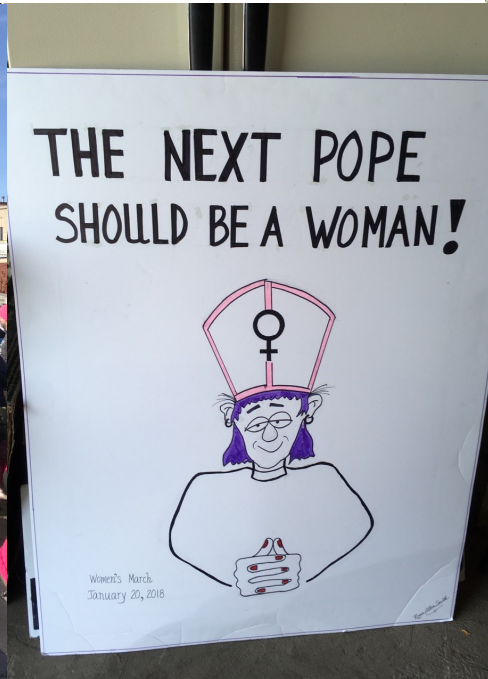 THE NEXT POPE
SHOULD BE A WOMAN!
Women's March
January 20, 2018